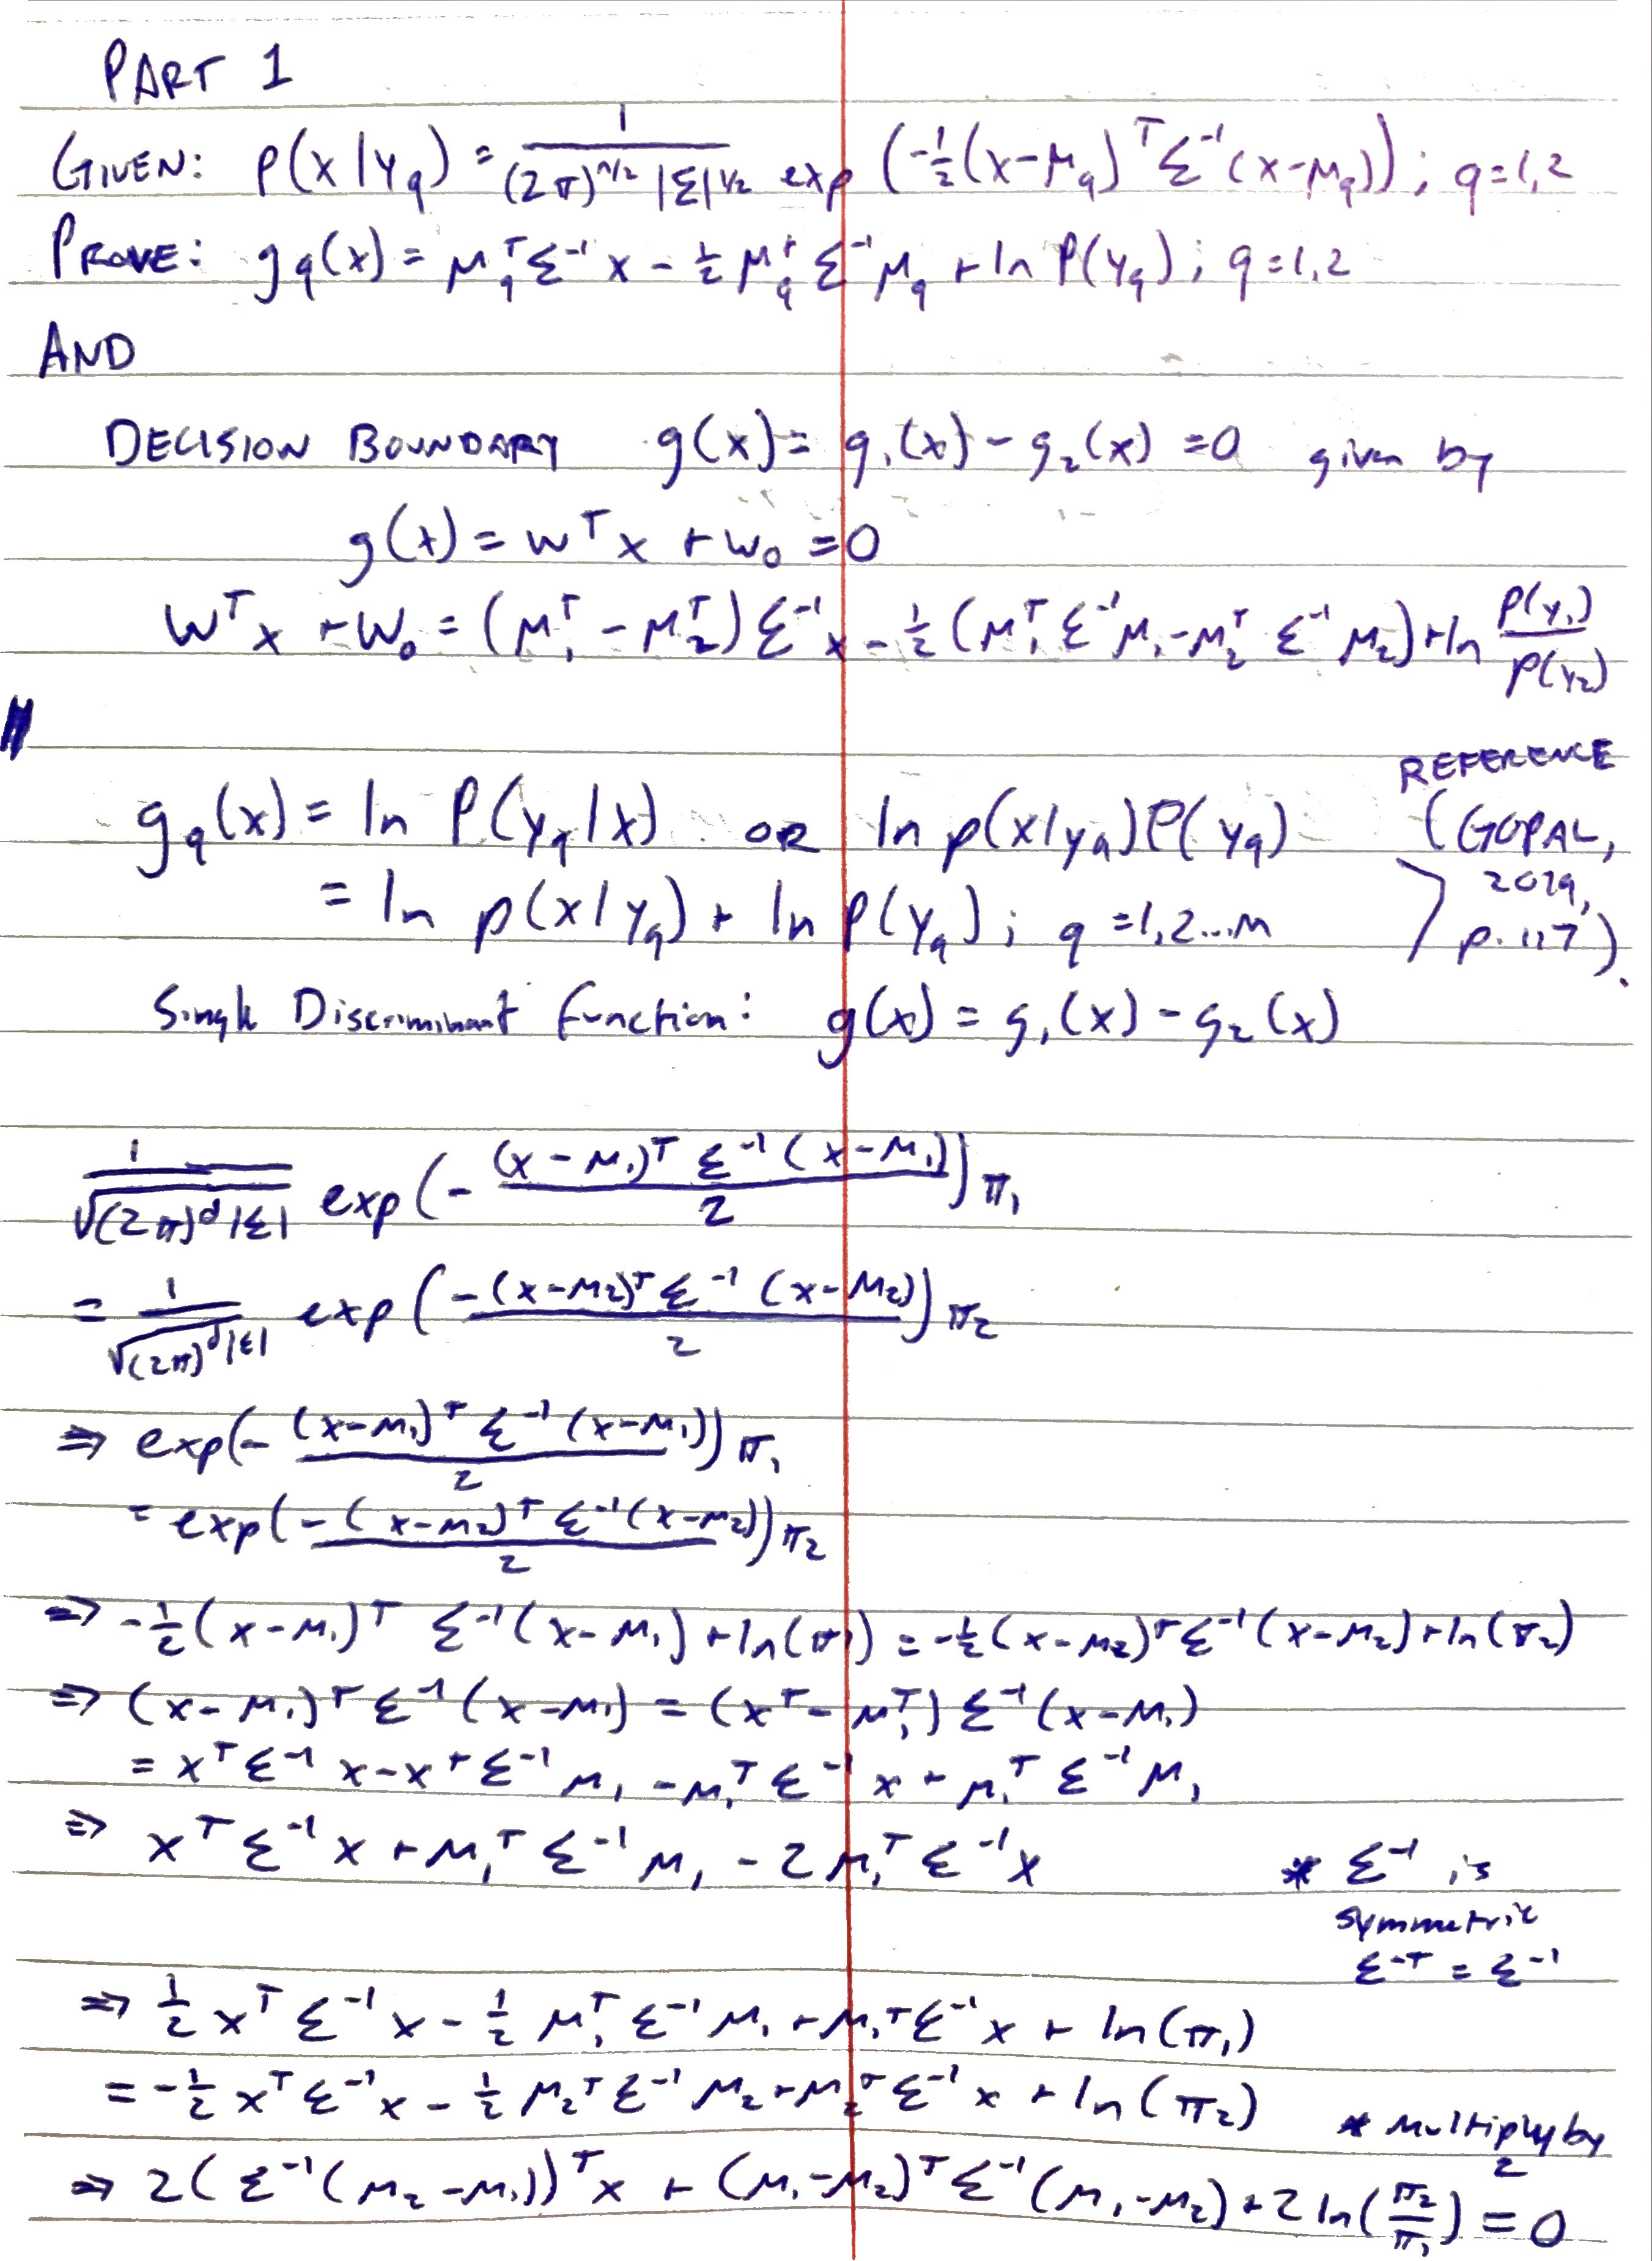 PART 1
GIVEN: p(x|y_q) = 1/((2π)^{n/2} |Σ|^{1/2}) exp(-½(x-μ_q)^T Σ^{-1}(x-μ_q)); q=1,2
PROVE: g_q(x) = μ_q^T Σ^{-1} x - ½ μ_q^T Σ^{-1} μ_q + ln P(y_q); q=1,2
AND
DECISION BOUNDARY g(x) = g_1(x) - g_2(x) = 0 given by
g(x) = w^T x + w_0 = 0
w^T x + w_0 = (μ_1^T - μ_2^T) Σ^{-1} x - ½ (μ_1^T Σ^{-1} μ_1 - μ_2^T Σ^{-1} μ_2) + ln P(y_1)/P(y_2)
REFERENCE
g_q(x) = ln P(y_q|x) OR ln p(x|y_q)P(y_q) (GOPAL,
2019,
= ln p(x|y_q) + ln P(y_q); q=1,2...M p. 117).
Single Discriminant function: g(x) = g_1(x) - g_2(x)
1/√((2π)^d |Σ|) exp(- (x-μ_1)^T Σ^{-1} (x-μ_1)/2) π_1
= 1/√((2π)^d |Σ|) exp(-(x-μ_2)^T Σ^{-1} (x-μ_2)/2) π_2
⇒ exp(- (x-μ_1)^T Σ^{-1} (x-μ_1)/2) π_1
= exp(-(x-μ_2)^T Σ^{-1} (x-μ_2)/2) π_2
⇒ -½(x-μ_1)^T Σ^{-1}(x-μ_1) + ln(π_1) = -½(x-μ_2)^T Σ^{-1}(x-μ_2) + ln(π_2)
⇒ (x-μ_1)^T Σ^{-1} (x-μ_1) = (x^T - μ_1^T) Σ^{-1} (x-μ_1)
= x^T Σ^{-1} x - x^T Σ^{-1} μ_1 - μ_1^T Σ^{-1} x + μ_1^T Σ^{-1} μ_1
⇒ x^T Σ^{-1} x + μ_1^T Σ^{-1} μ_1 - 2 μ_1^T Σ^{-1} x * Σ^{-1} is
symmetric
Σ^{-T} = Σ^{-1}
⇒ ½ x^T Σ^{-1} x - ½ μ_1^T Σ^{-1} μ_1 + μ_1^T Σ^{-1} x + ln(π_1)
= -½ x^T Σ^{-1} x - ½ μ_2^T Σ^{-1} μ_2 + μ_2^T Σ^{-1} x + ln(π_2) * multiply by
2
⇒ 2(Σ^{-1}(μ_2-μ_1))^T x + (μ_1-μ_2)^T Σ^{-1} (μ_1-μ_2) + 2 ln(π_2/π_1) = 0